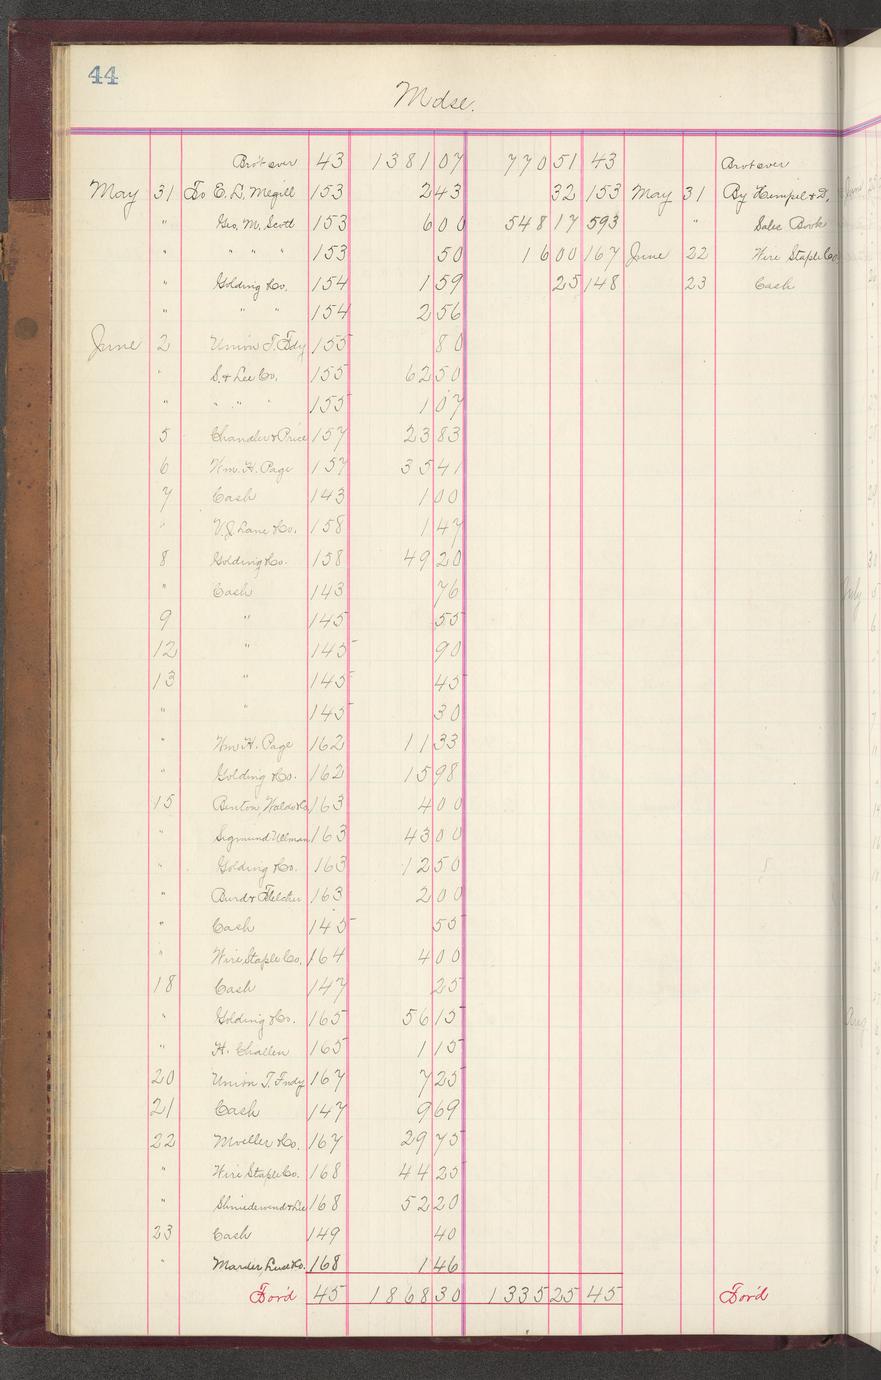 44
Mdse.
Brot over 43 1381 07 770 51 43 Brot over
May 31 To E. L. Megill 153 2 43 32 153 May 31 By Kumpel & D.
" Geo. M. Scott 153 6 00 548 17 593 " Sales Book
" " " " 153 50 16 00 167 June 22 Wire Staple Co
" Golding & Co. 154 1 59 25 148 23 Cash
" " " 154 2 56
June 2 Union T. Fdy 155 80
" S. & Lee Co. 155 62 50
" " " " 155 1 07
5 Chandler & Price 157 23 83
6 Wm. H. Page 157 35 41
7 Cash 143 1 00
" V. J. Lane & Co. 158 1 47
8 Golding & Co. 158 49 20
" Cash 143 76
9 " 145 55
12 " 145 90
13 " 145 45
" " 145 30
" Wm. H. Page 162 11 33
" Golding & Co. 162 15 98
15 Benton, Waldo & Co. 163 4 00
" Sigmund Ullman 163 43 00
" Golding & Co. 163 12 50
" Burd & Fletcher 163 2 00
" Cash 145 55
" Wire Staple Co. 164 4 00
18 Cash 147 25
" Golding & Co. 165 56 15
" H. Challen 165 1 15
20 Union T. Fndy 167 7 25
21 Cash 147 9 69
22 Mueller & Co. 167 29 75
" Wire Staple Co. 168 44 25
" Shniedewend & Lee 168 52 20
23 Cash 149 40
" Marder, Luse & Co. 168 1 46
For'd 45 1868 30 1335 25 45 For'd
July
Aug